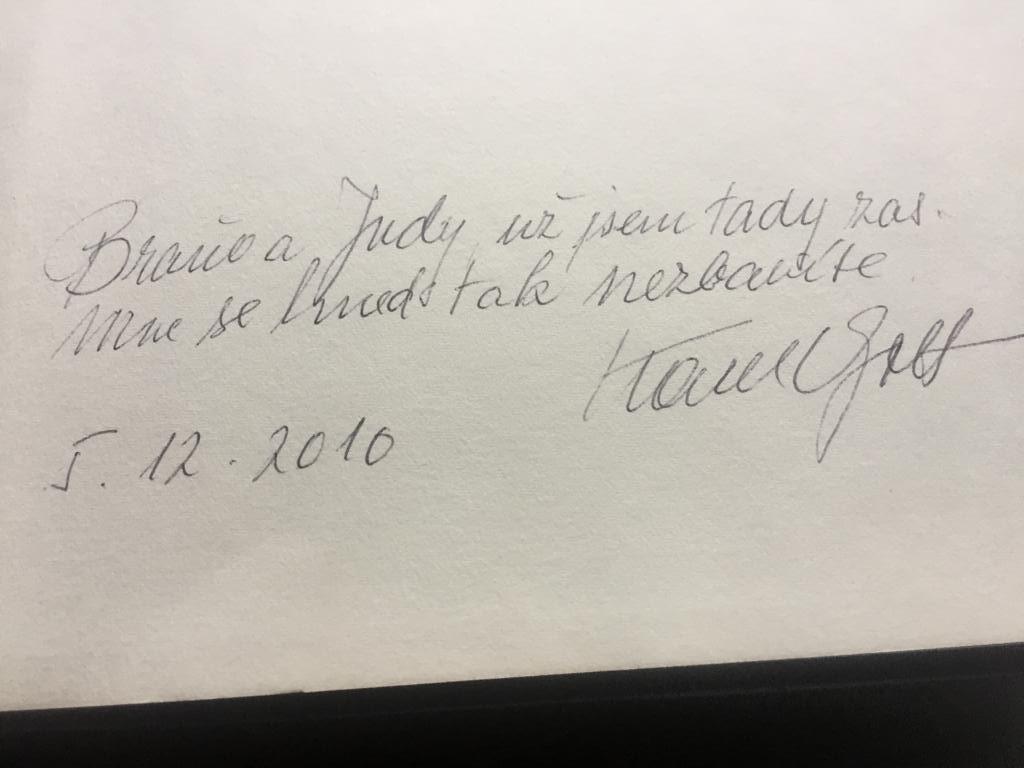 Braňo a Judy, už jsem tady zas.
Mne se hned tak nezbavíte
Karel Gott
5. 12. 2010